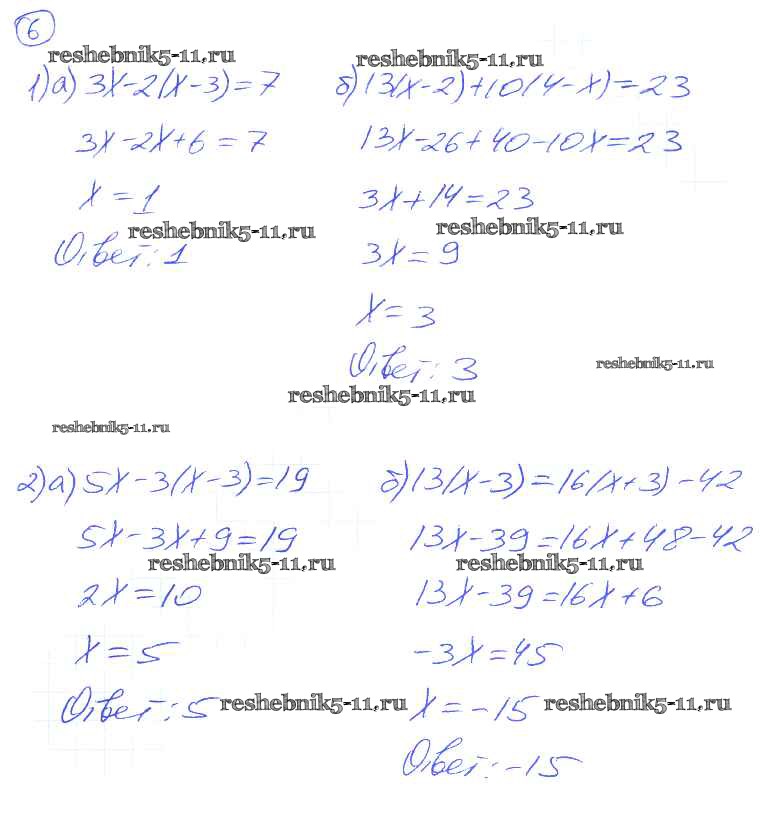 6
reshebnik5-11.ru
reshebnik5-11.ru
1)а) 3х-2(х-3)=7
3х-2х+6=7
х=1
reshebnik5-11.ru
Ответ: 1
б) 13(х-2)+10(4-х)=23
13х-26+40-10х=23
3х+14=23
reshebnik5-11.ru
3х=9
х=3
Ответ: 3
reshebnik5-11.ru
reshebnik5-11.ru
reshebnik5-11.ru
2)а) 5х-3(х-3)=19
5х-3х+9=19
reshebnik5-11.ru
2х=10
х=5
Ответ: 5
reshebnik5-11.ru
б) 13(х-3)=16(х+3)-42
13х-39=16х+48-42
reshebnik5-11.ru
13х-39=16х+6
-3х=45
х=-15
reshebnik5-11.ru
Ответ: -15